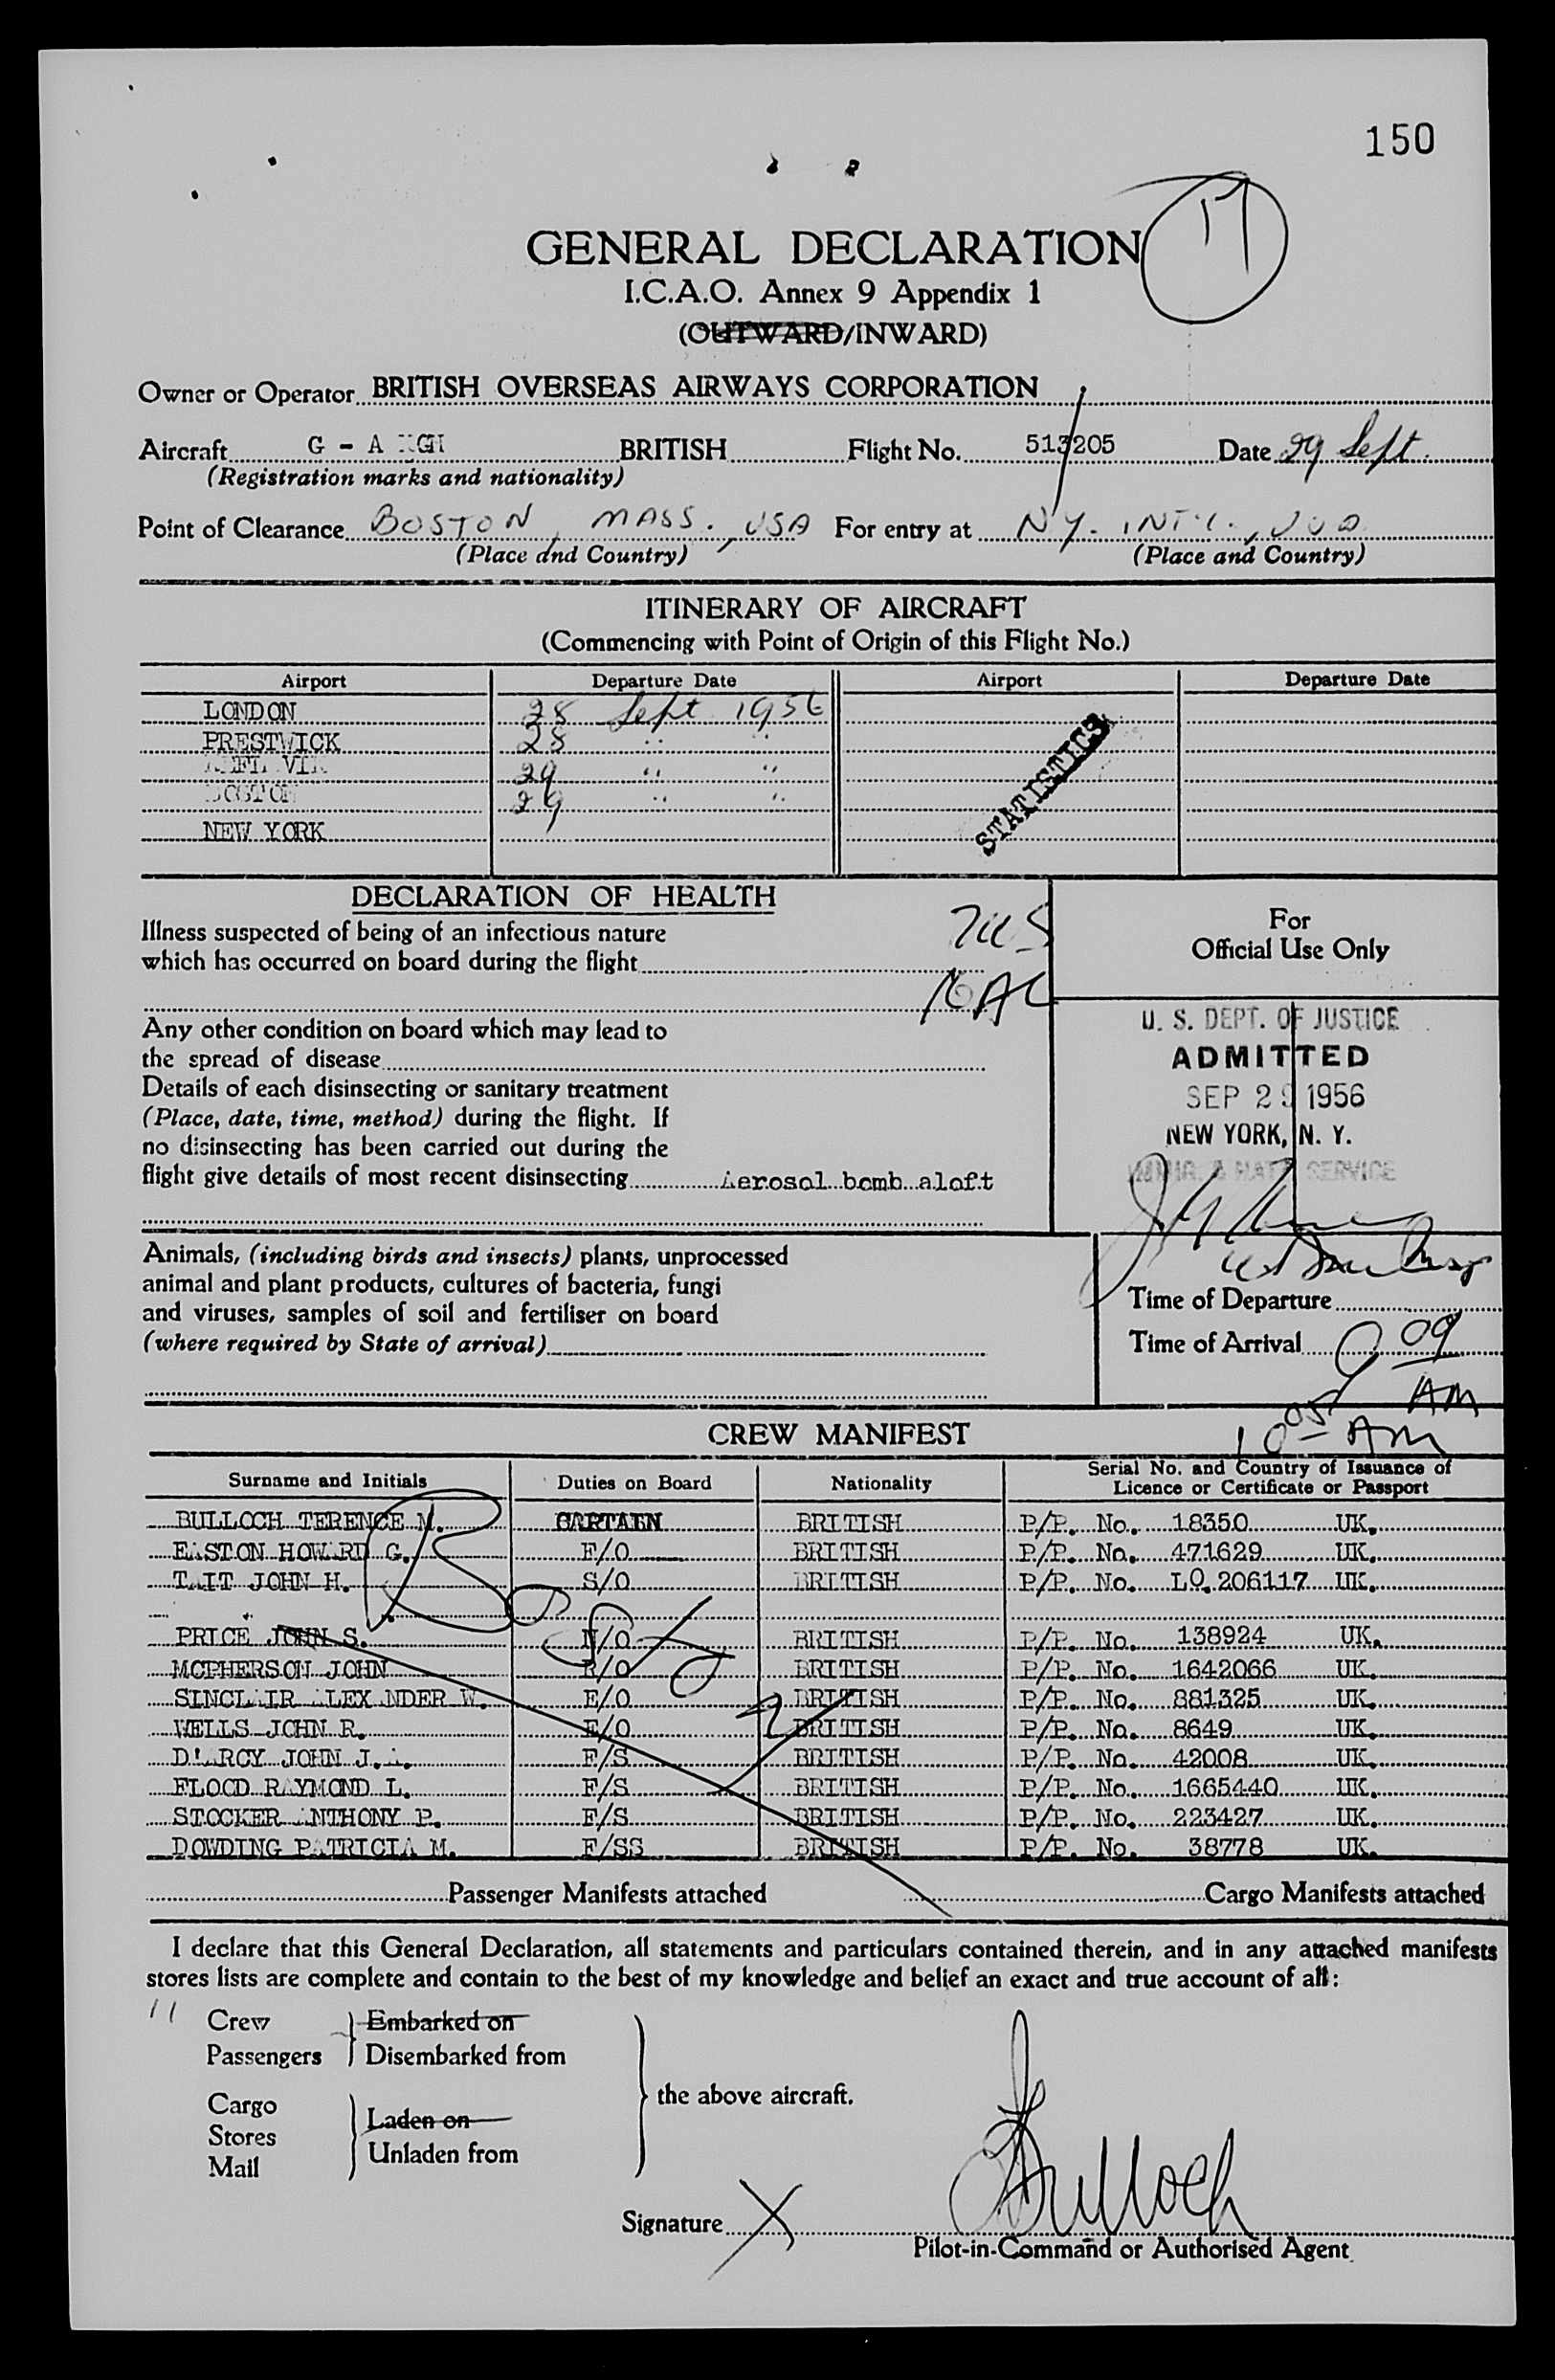 150
17
GENERAL DECLARATION
I.C.A.O. Annex 9 Appendix 1
(OUTWARD/INWARD)
Owner or Operator BRITISH OVERSEAS AIRWAYS CORPORATION
Aircraft G - A BRITISH Flight No. 513/205 Date 29 Sept.
(Registration marks and nationality)
Point of Clearance BOSTON, MASS., USA For entry at NY. INT'L., USA
(Place and Country) (Place and Country)
ITINERARY OF AIRCRAFT
(Commencing with Point of Origin of this Flight No.)
Airport Departure Date Airport Departure Date
LONDON 28 Sept 1956
PRESTWICK 28 " "
29 " "
BOSTON 29 " "
NEW YORK
STATISTICS
DECLARATION OF HEALTH
Illness suspected of being of an infectious nature
which has occurred on board during the flight
Any other condition on board which may lead to
the spread of disease
Details of each disinsecting or sanitary treatment
(Place, date, time, method) during the flight. If
no disinsecting has been carried out during the
flight give details of most recent disinsecting Aerosol bomb aloft
For
Official Use Only
U. S. DEPT. OF JUSTICE
ADMITTED
SEP 29 1956
NEW YORK, N. Y.
IMMIG. & NATZ SERVICE
Animals, (including birds and insects) plants, unprocessed
animal and plant products, cultures of bacteria, fungi
and viruses, samples of soil and fertiliser on board
(where required by State of arrival)
Time of Departure
Time of Arrival 9 09
AM
10 05 AM
CREW MANIFEST
Surname and Initials Duties on Board Nationality Serial No. and Country of Issuance of
Licence or Certificate or Passport
BULLOCH TERENCE M. CAPTAIN BRITISH P/P. No. 18350 UK.
EASTON HOWARD G. F/O BRITISH P/P. No. 471629 UK.
TAIT JOHN H. S/O BRITISH P/P. No. LO.206117 UK.
PRICE JOHN S. N/O BRITISH P/P. No. 138924 UK.
MCPHERSON JOHN R/O BRITISH P/P. No. 1642066 UK.
SINCLAIR ALEXANDER W. E/O BRITISH P/P. No. 881325 UK.
WELLS JOHN R. E/O BRITISH P/P. No. 8649 UK.
D'ARCY JOHN J.A. F/S BRITISH P/P. No. 42008 UK.
FLOOD RAYMOND L. F/S BRITISH P/P. No. 1665440 UK.
STOCKER ANTHONY P. F/S BRITISH P/P. No. 223427 UK.
DOWDING PATRICIA M. F/SS BRITISH P/P. No. 38778 UK.
Passenger Manifests attached Cargo Manifests attached
I declare that this General Declaration, all statements and particulars contained therein, and in any attached manifests
stores lists are complete and contain to the best of my knowledge and belief an exact and true account of all:
11 Crew Embarked on
Passengers Disembarked from
the above aircraft.
Cargo Laden on
Stores
Unladen from
Mail
Signature X Bulloch
Pilot-in-Command or Authorised Agent